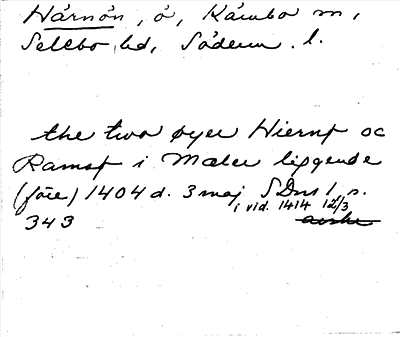 Hårnön, ö, Kårnbo sn,
Selebo hd, Söderm. l.
the two øyer Hiernø oc
Ramsø i Mæler liggende
(före) 1404 d. 3 maj SDns 1, s.
i vid. 1414 12/3
343